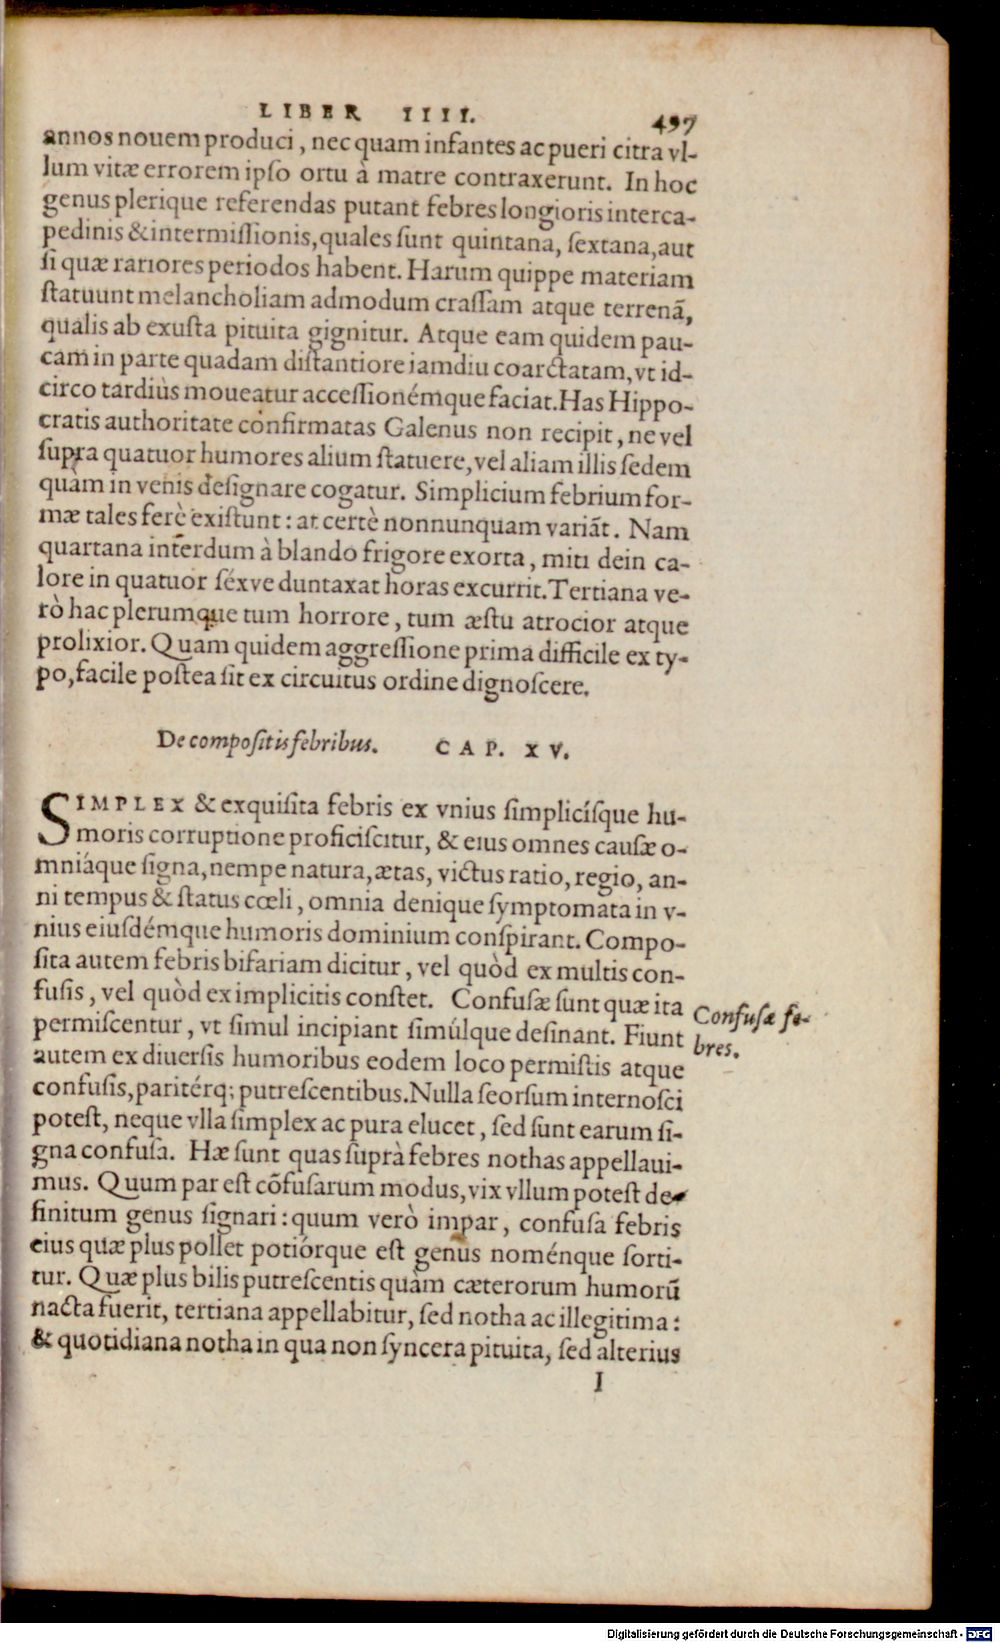 LIBER IIII. 497
annos nouem produci, nec quam infantes ac pueri citra vl-
lum vitæ errorem ipſo ortu à matre contraxerunt. In hoc
genus plerique referendas putant febres longioris interca-
pedinis & intermiſſionis, quales ſunt quintana, ſextana, aut
ſi quæ rariores periodos habent. Harum quippe materiam
ſtatuunt melancholiam admodum craſſam atque terrenã,
qualis ab exuſta pituita gignitur. Atque eam quidem pau-
cam in parte quadam diſtantiore iamdiu coarctatam, vt id-
circo tardiùs moueatur acceſſionémque faciat. Has Hippo-
cratis authoritate confirmatas Galenus non recipit, ne vel
ſupra quatuor humores alium ſtatuere, vel aliam illis ſedem
quàm in venis deſignare cogatur. Simplicium febrium for-
mæ tales ferè exiſtunt: at certè nonnunquam variãt. Nam
quartana interdum à blando frigore exorta, miti dein ca-
lore in quatuor ſéxve duntaxat horas excurrit. Tertiana ve-
rò hac plerumque tum horrore, tum æſtu atrocior atque
prolixior. Quam quidem aggreſſione prima difficile ex ty-
po, facile poſtea ſit ex circuitus ordine dignoſcere.
De compoſitis febribus. CAP. XV.
SIMPLEX & exquiſita febris ex vnius ſimplicíſque hu-
moris corruptione proficiſcitur, & eius omnes cauſæ o-
mniáque ſigna, nempe natura, ætas, victus ratio, regio, an-
ni tempus & ſtatus cœli, omnia denique ſymptomata in v-
nius eiuſdémque humoris dominium conſpirant. Compo-
ſita autem febris bifariam dicitur, vel quòd ex multis con-
fuſis, vel quòd ex implicitis conſtet. Confuſæ ſunt quæ ita
permiſcentur, vt ſimul incipiant ſimúlque deſinant. Fiunt
Confuſæ fe-
bres.
autem ex diuerſis humoribus eodem loco permiſtis atque
confuſis, pariterq́; putreſcentibus. Nulla ſeorſum internoſci
poteſt, neque vlla ſimplex ac pura elucet, ſed ſunt earum ſi-
gna confuſa. Hæ ſunt quas ſuprà febres nothas appellaui-
mus. Quum par eſt cõfuſarum modus, vix vllum poteſt de-
finitum genus ſignari: quum verò impar, confuſa febris
eius quæ plus pollet potiórque eſt genus noménque ſorti-
tur. Quæ plus bilis putreſcentis quàm cæterorum humorũ
nacta fuerit, tertiana appellabitur, ſed notha ac illegitima:
& quotidiana notha in qua non ſyncera pituita, ſed alterius
I
Digitalisierung gefördert durch die Deutsche Forschungsgemeinschaft - DFG